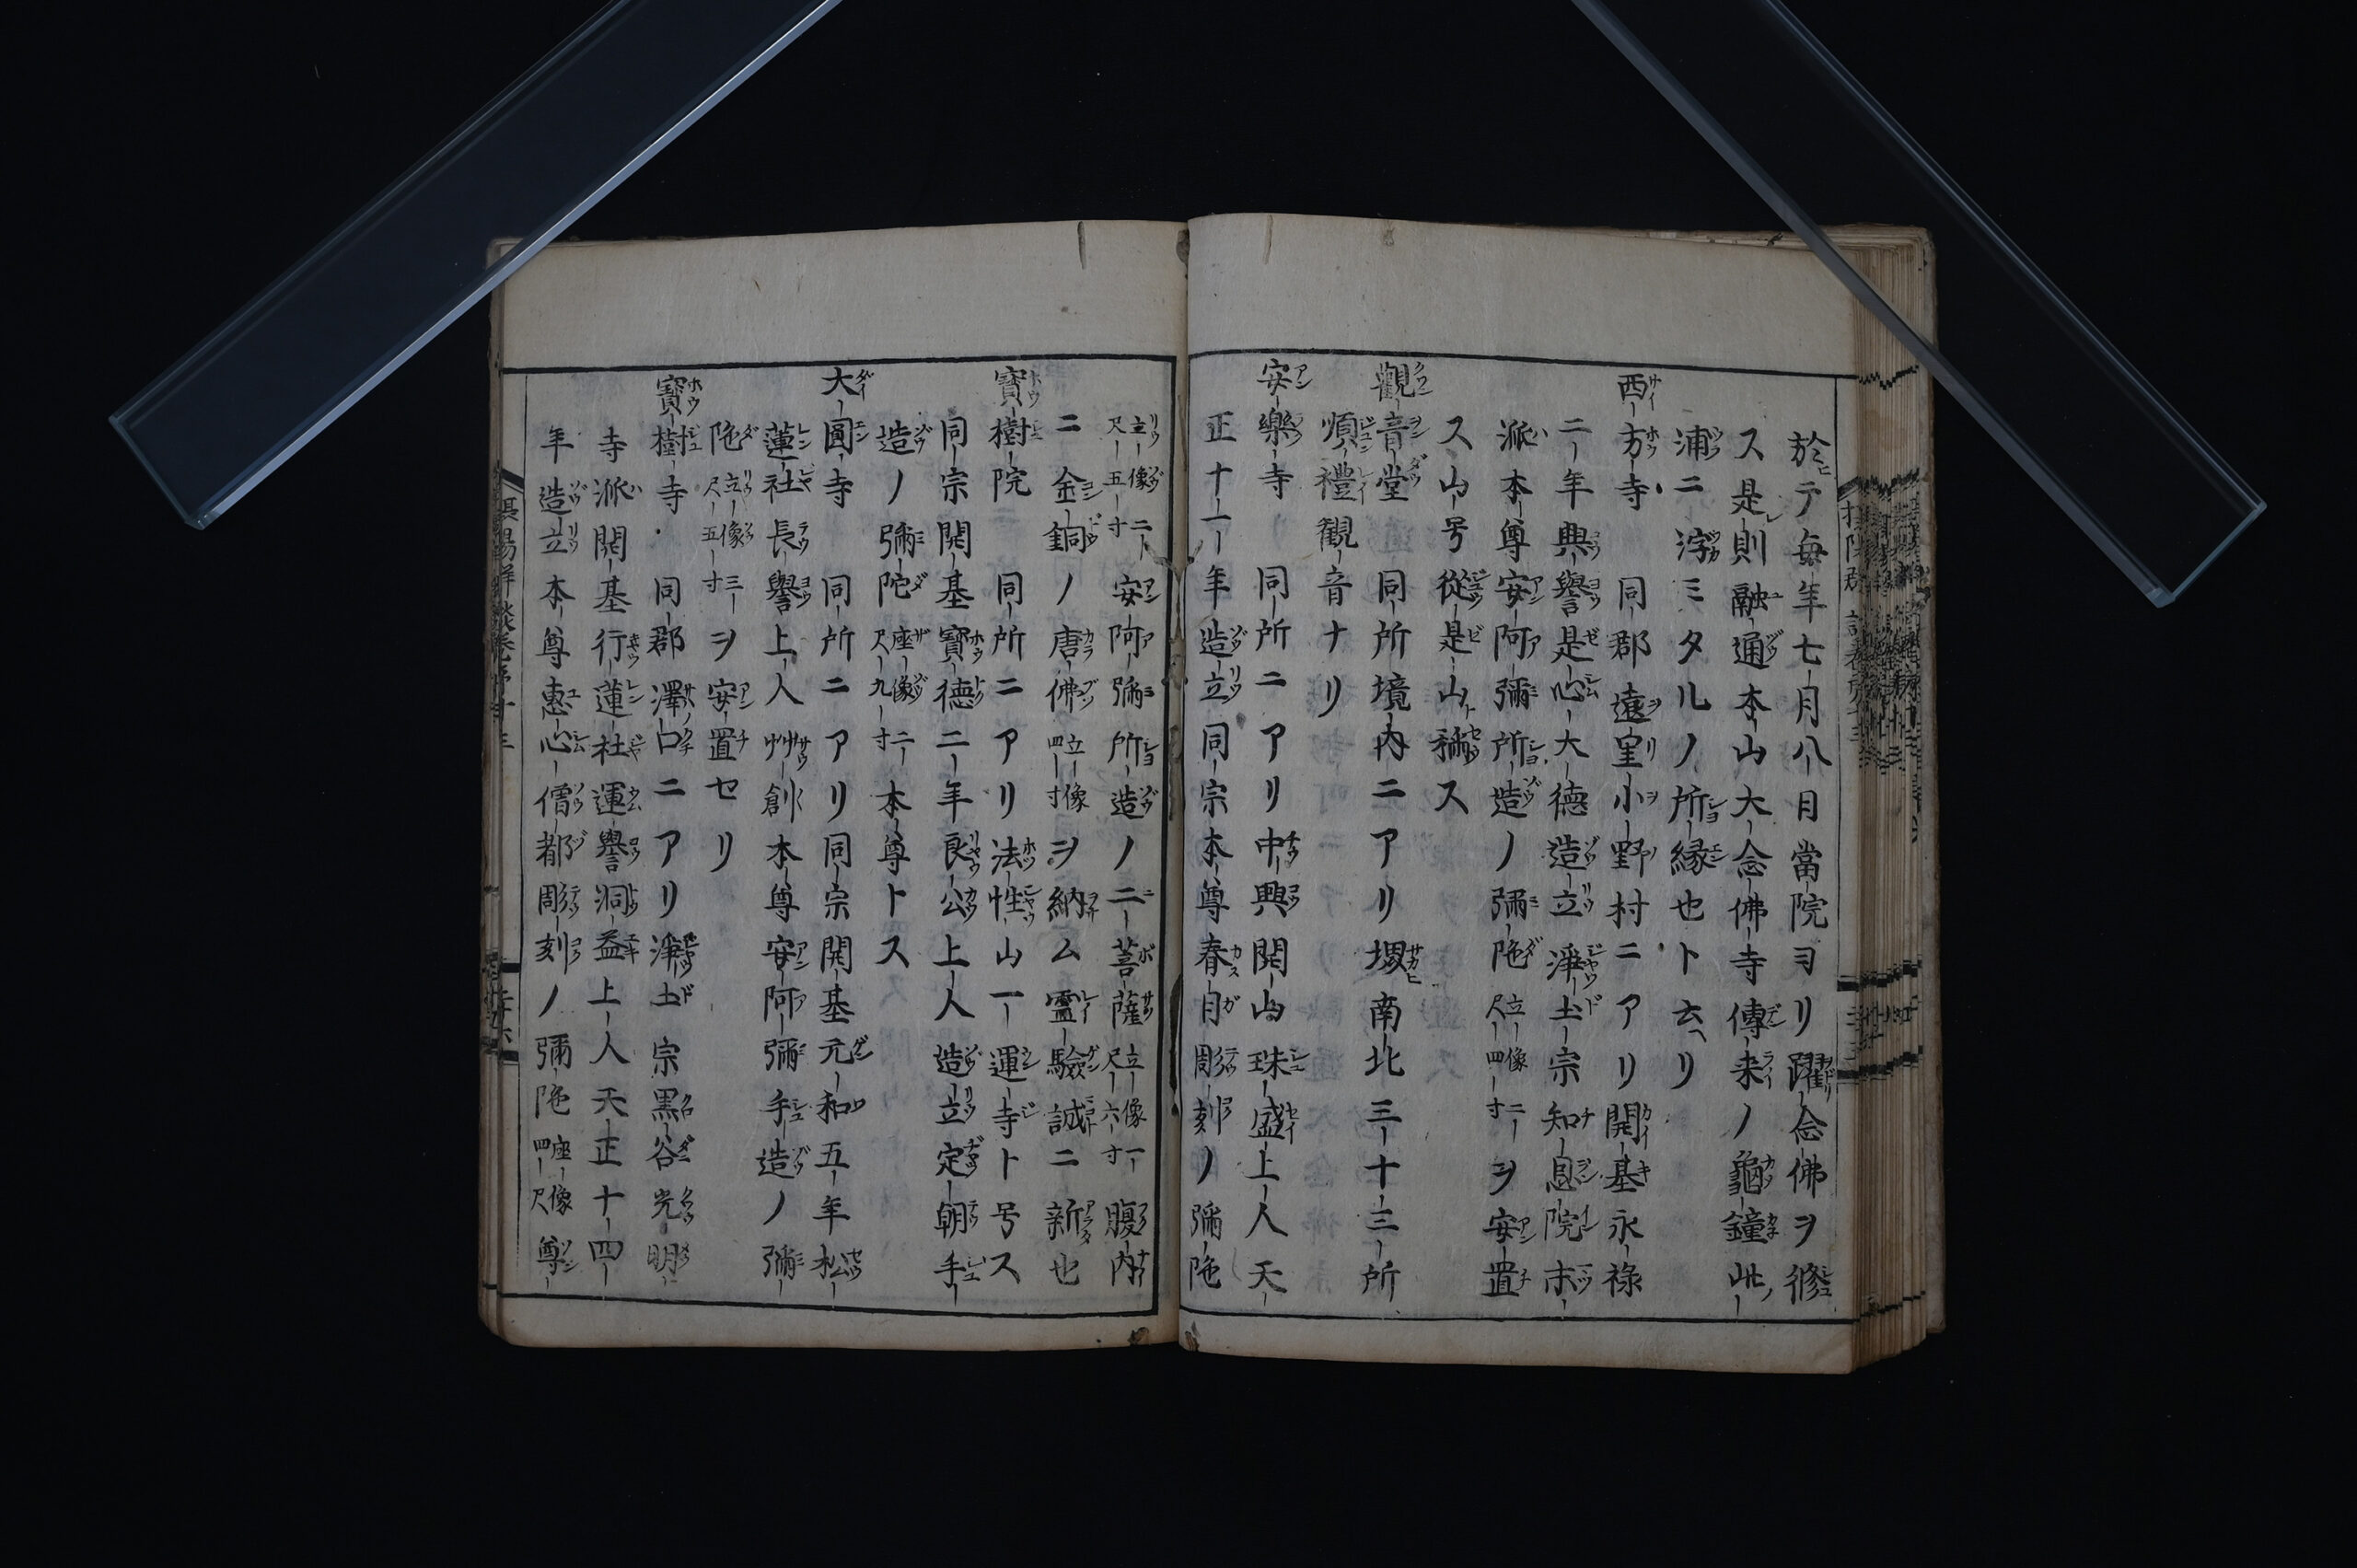 於テ毎年七月八日當院ヨリ躍念佛ヲ修
ス是則融通本山大念佛寺傳来ノ龜鐘此
浦ニ浮ミタルノ所縁也ト云リ
西方寺 同郡遠里小野村ニアリ開基永禄
二年興譽是心大德造立淨土宗知恩院末
派本尊安阿彌所造ノ彌陁立像四尺二寸ヲ安置
ス山号從是山ト稱ス
觀音堂 同所境内ニアリ堺南北三十三所
順禮観音ナリ
安樂寺 同所ニアリ中興開山珠盛上人天
正十一年造立同宗本尊春日彫刻ノ彌陁
立像二尺五寸安阿彌所造ノ二菩薩立像一尺六寸腹内
ニ金銅ノ唐佛立像四寸ヲ納ム靈驗誠ニ新也
寶樹院 同所ニアリ法性山一運寺ト号ス
同宗開基寶德二年良公上人造立定朝手
造ノ彌陀座像二尺九寸本尊トス
大圓寺 同所ニアリ同宗開基元和五年松
蓮社長譽上人艸創本尊安阿彌手造ノ彌
陁立像三尺五寸ヲ安置セリ
寶樹寺 同郡澤口ニアリ淨土宗黒谷光明
寺派開基行蓮社運譽洞益上人天正十四
年造立本尊惠心僧都彫刻ノ彌陁座像四尺尊